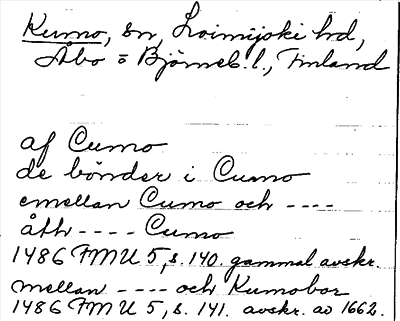 Kumo, sn, Loimijoki hd,
Åbo o Björneb. l., Finland
af Cumo
de bönder i Cumo
emellan Cumo och ----
åth ---- Cumo
1486 FMU 5, s. 140. gammal avskr.
mellan ---- och Kumobor
1486 FMU 5, s. 141. avskr. av 1662.